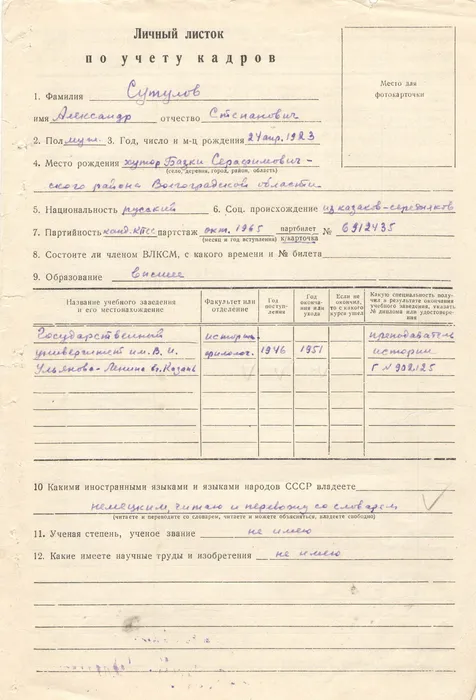 Личный листок
по учету кадров
Место для
фотокарточки
1. Фамилия Сутулов
имя Александр отчество Степанович
2. Пол муж. 3. Год, число и м-ц рождения 24 апр. 1923
4. Место рождения хутор Бацки Серафимович-
(село, деревня, город, район, область)
ского района Волгоградской области.
5. Национальность русский 6. Соц. происхождение из казаков-середняков
7. Партийность канд. КПСС партстаж окт. 1965 партбилет № 6912435
(месяц и год вступления) к/карточка
8. Состоите ли членом ВЛКСМ, с какого времени и № билета
9. Образование высшее
Название учебного заведения и его местонахождение
Факультет или отделение
Год поступления
Год окончания или ухода
Если не окончил, то с какого курса ушел
Какую специальность получил в результате окончания учебного заведения, указать № диплома или удостоверения
Государственный историк- преподаватель
университет им. В.И. филолог. 1946 1951 истории
Ульянова-Ленина в г. Казань Г № 902125
10 Какими иностранными языками и языками народов СССР владеете
немецким, читаю и перевожу со словарем
(читаете и переводите со словарем, читаете и можете объясняться, владеете свободно)
11. Ученая степень, ученое звание не имею
12. Какие имеете научные труды и изобретения не имею